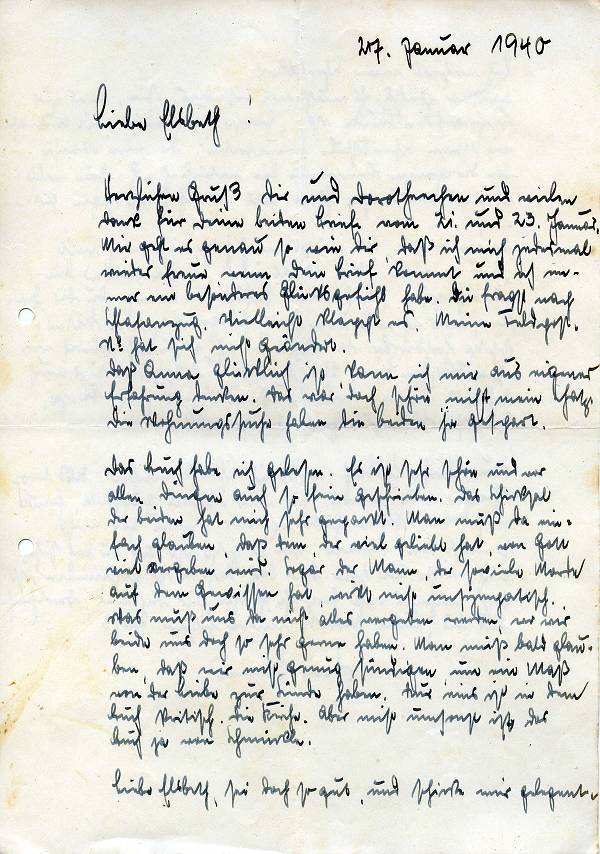 27. Januar 1940
Liebe Elsbeth!
Herzlichen Gruß Dir und Dorotheechen und vielen
Dank für Deine beiden Briefe vom 21. und 23. Januar.
Mir geht es genau so wie Dir, daß ich mich jedesmal
wieder freue wenn Dein Brief kommt und ich im-
mer ein besonderes Glücksgefühl habe. Du fragst nach
Schlafanzug. Vielleicht klappt es. Meine Feldpost-
Nr. hat sich nicht geändert.
Daß Anna glücklich ist, kann ich mir aus eigener
Erfahrung denken. Das war doch schön nicht mein Schatz.
Die Wohnungssuche haben die beiden ja gespart.
Das Buch habe ich gelesen. Es ist sehr schön und vor
allen Dingen auch so fein geschrieben. Das Schicksal
der beiden hat mich sehr gepackt. Man muß da ein-
fach glauben, daß dem, der viel geliebt hat, von Gott
viel vergeben wird. Sogar der Mann, der soviele Morde
auf dem Gewissen hat, wirkt nicht unsympathisch.
Was muß uns da nicht alles vergeben werden, wo wir
beide uns doch so sehr gerne haben. Man muß bald glau-
ben, daß wir nicht genug sündigen, um ein Maß
von der Liebe zur Sünde haben. Nur eins ist in dem
Buch kritisch. Die Kirche. Aber nicht umsonst ist das
Buch ja von Schmückle.
Liebe Elsbeth, sei doch so gut, und schicke mir gelegent-